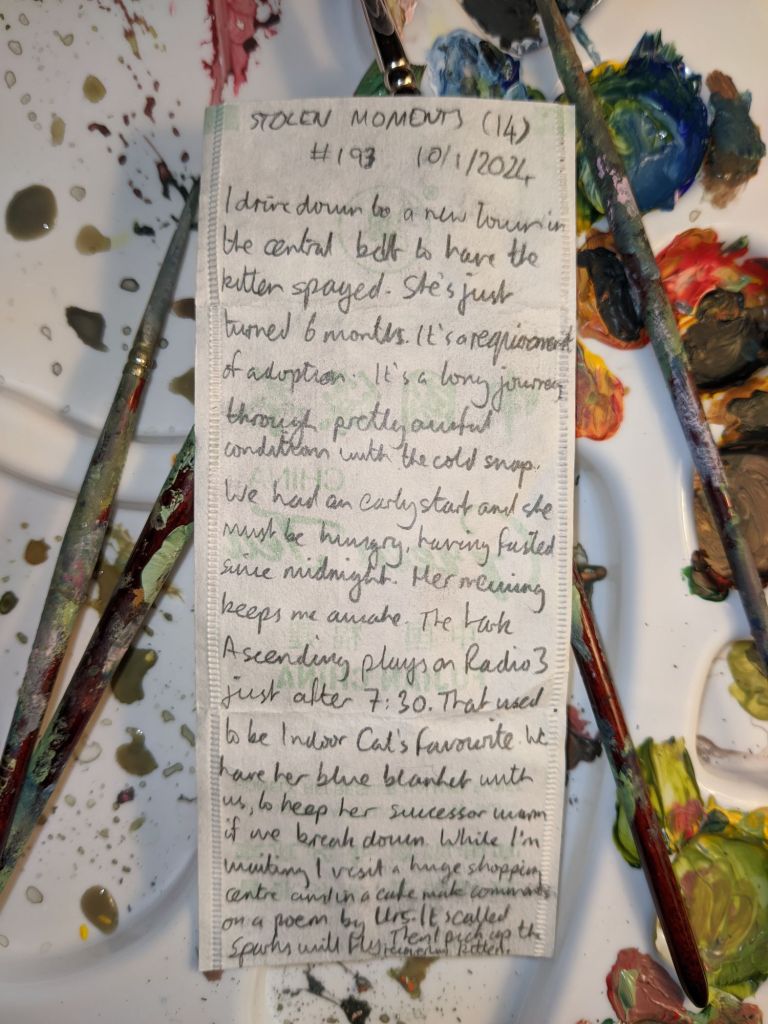 STOLEN MOMENTS (14)
#193 10/1/2024
I drive down to a new Town in
the central belt to have the
kitten spayed. She's just
turned 6 months. It's a requirement
of adoption. It's a long journey
through pretty awful
conditions with the cold snap.
We had an early start and she
must be hungry, having fasted
since midnight. Her mewing
keeps me awake. The Lark
Ascending plays on Radio 3
just after 7:30. That used
to be Indoor Cat's favourite. We
have her blue blanket with
us, to keep her successor warm
if we break down. While I'm
waiting I visit a huge shopping
centre and in a cafe make comments
on a poem by Urs. It's called
Sparks will Fly. Then I pick up the
recovering kitten.
CHINA
CHINA